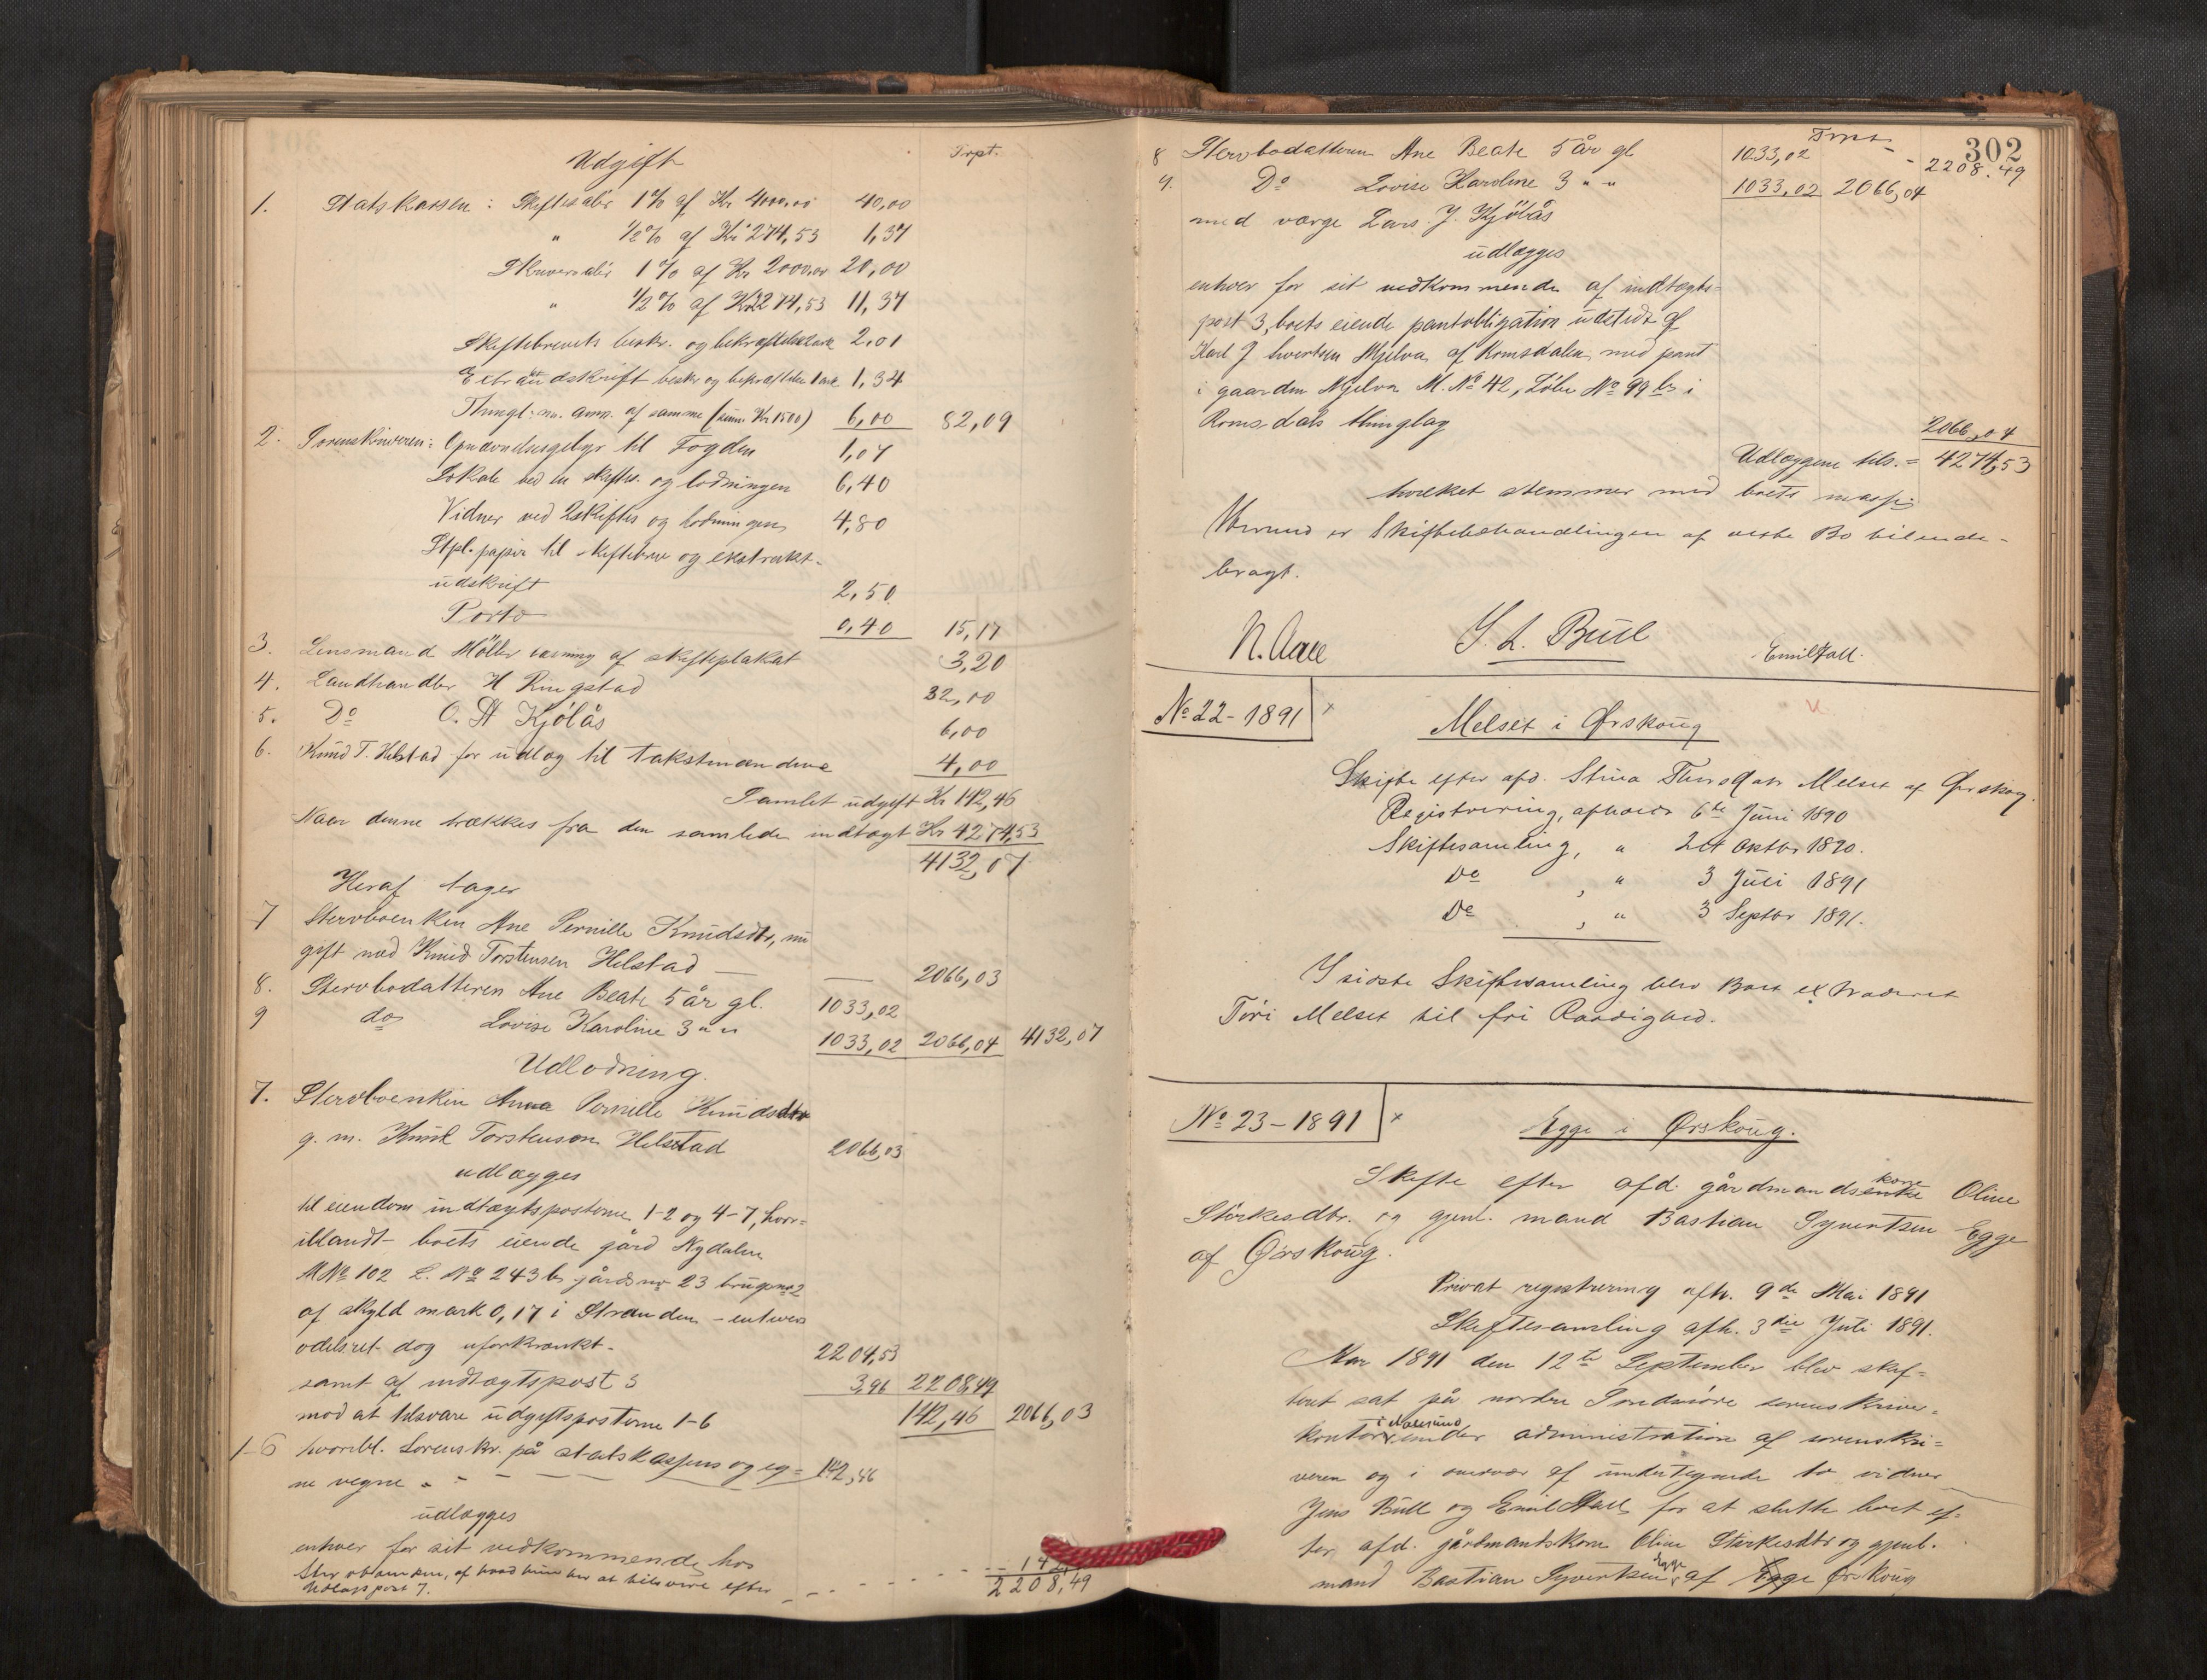 Udgift Trpt.
1. Statskassen: Skifteafår 1% af Kr 4000,00 40,00
" ½% af Kr 274,53 1,37
Skriversalår 1% af Kr 2000,00 20,00
" ½% af Kr 2274,53 11,37
Skiftebrevets beskr. og bekræftelse 2,01
Extraktudskrift beskr og bekræftelse 1 ark 1,34
Thingl. m. anm. af samme (sum Kr 1500) 6,00 82,09
2. Sorenskriveren: Opnævnelsesgebyr til Fogden 1,07
Lokale ved en skiftes. og lodningen 6,40
Vidner ved 2 skiftes og lodningen 4,80
Stpl. papir til skiftebrev og ekstrakt-
udskrift 2,50
Porto 0,40 15,17
3. Lensmand Möller læsning af skifteplakat 3,20
4. Landhandler H Ringstad 32,00
5. Do O. A Kjölås 6,00
6. Knud T. Helstad for udlæg til takstmændene 4,00
Samlet udgift Kr 142,46
Naar denne trækkes fra den samlede indtægt Kr 4274,53
4132,07
Heraf tager
7 Stervboenken Ane Pernille Knudsdtr, nu
gift med Knud Torstensen Helstad 2066,03
8. Stervbodatteren Ane Beate 5 år gl. 1033,02
9 do Lovise Karoline 3 " " 1033,02 2066,04 4132,07
Udlodning.
7. Stervboenken Anna Pernille Knudsdtr
g. m. Knud Torstensen Helstad 2066,03
udlægges
til eiendom indtægtsposterne 1-2 og 4-7, hvor-
iblandt boets eiende gård Nydalen
M No 102 L. No 243 b gårdsno 23 brugsno 2
af skyld mark 0,17 i Stranden - enhvers
odelsret dog uforkrænkt - 2204,53
samt af indtægtspost 3 3,96 2208,49
mod at tilsvare udgiftsposterne 1-6 142,46 2066,03
1-6 hvornbl. Sorenskr. på statskassens og eg- 142,46
ne vegne
udlægges
enhver for sit vedkommende hos
Stervboenken, af hvad hun har at tilsvare efter
Udlægspost 7. 2208,49
302
Trpt - 2208,49
8 Stervbodatteren Ane Beate 5 år gl 1033,02
9. Do Lovise Karoline 3 " " 1033,02 2066,04
med værge Lars J. Kjölås
udlægges
enhver for sit vedkommende af indtægts-
post 3, boets eiende pantobligation udstedt af
Karl J Mjelva af Romsdalen med pant
i gaarden Mjelva M. No 42, Löbe No 99 b i
Romsdals thinglag 2066,04
Udlæggene tils. = 4274,53
hvilket stemmer med boets masse
Hermed er Skiftebehandlingen af dette Bo tilende-
bragt.
N. Aae J. L. Bull Emil Fall.
No 22 - 1891 Melset i Ørskoug
Skifte efter afd. Stina Melset af Ørskog.
Registrering, afholdt 6te Juni 1890
Skiftesamling, " 24 Oktbr 1890.
Do , " 3 Juli 1891
Do , " 3 Septbr 1891.
I sidste Skiftesamling blev Boet extraderet
Töri Melset til fri Raadighed.
No 23 - 1891 Egge i Ørskoug.
Skifte efter afd. gårdmandskone Oline
Störkesdtr. og gjenl. mand Bastian Syvertsen Egge
af Ørskoug.
Privat registrering afh. 9de Mai 1891
Skiftesamling afh. 3die Juli 1891.
Aar 1891 den 12te September blev skif-
teret sat på nordre Söndmöre sorenskriver-
kontor i Aalesund under administration af sorenskri-
veren og i overvær af undertegnede to vidner
Jens Bull og Emil Fall for at slutte boet ef-
ter afd. gårdmandskone Oline Störkesdtr og gjenl.
mand Bastian Syvertsen Egge af Ørskoug